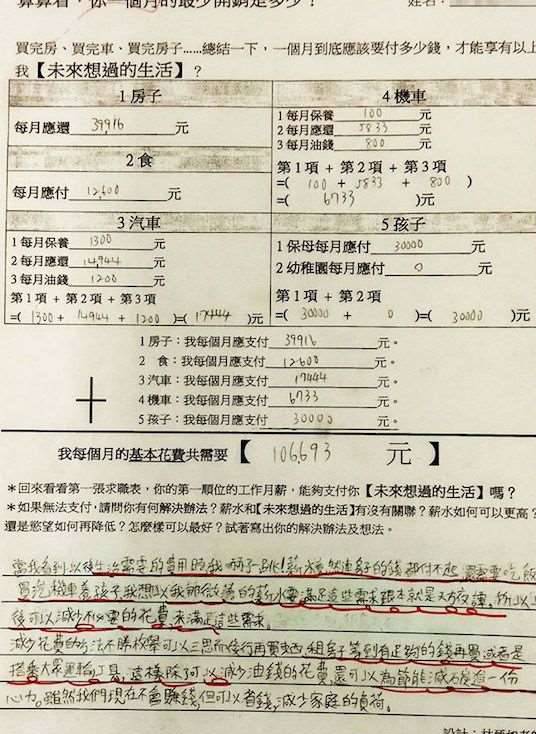 算算看，你一個月的最少開銷是多少？
姓名：
買完房、買完車、買完房子……總結一下，一個月到底應該要付多少錢，才能享有以上
我【未來想過的生活】？
1 房子
每月應還 39916 元
2 食
每月應付 12600 元
3 汽車
1 每月保養 1300 元
2 每月應還 14,944 元
3 每月油錢 1200 元
第 1 項 + 第 2 項 + 第 3 項
=( 1300 + 14944 + 1200 )=( 17444 )元
4 機車
1 每月保養 100 元
2 每月應還 5833 元
3 每月油錢 800 元
第 1 項 + 第 2 項 + 第 3 項
=( 100 + 5833 + 800 )
=( 6733 )元
5 孩子
1 保母每月應付 30000 元
2 幼稚園每月應付 0 元
第 1 項 + 第 2 項
=( 30000 + 0 )=( 30000 )元
1 房子：我每個月應支付 39916 元。
2 食：我每個月應支付 12600 元。
3 汽車：我每個月應支付 17444 元。
4 機車：我每個月應支付 6733 元。
5 孩子：我每個月應支付 30000 元。
＋
我每個月的基本花費共需要【 106,693 元 】
＊回來看看第一張求職表，你的第一順位的工作月薪，能夠支付你【未來想過的生活】嗎？
＊如果無法支付，請問你有何解決辦法？薪水和【未來想過的生活】有沒有關聯？薪水如何可以更高？
還是慾望如何再降低？怎麼樣可以最好？試著寫出你的解決辦法及想法。
當我看到以後生活需要的費用時我嚇了一跳！薪水竟然連房子的錢都付不起，還需要吃飯
買汽機車養孩子，我想以我那微薄的薪水要滿足這些需求根本就是天方夜譚，所以以
後可以減少不必要的花費來滿足這些需求。
減少花費的方法不勝枚舉可以三思而後行再買東西，租房子等到有足夠的錢再買或者是
搭乘大眾運輸工具，這樣除了可以減少油錢的花費，還可以為節能減碳盡一份
心力。雖然我們現在不會賺錢，但可以省錢，減少家庭的負荷。